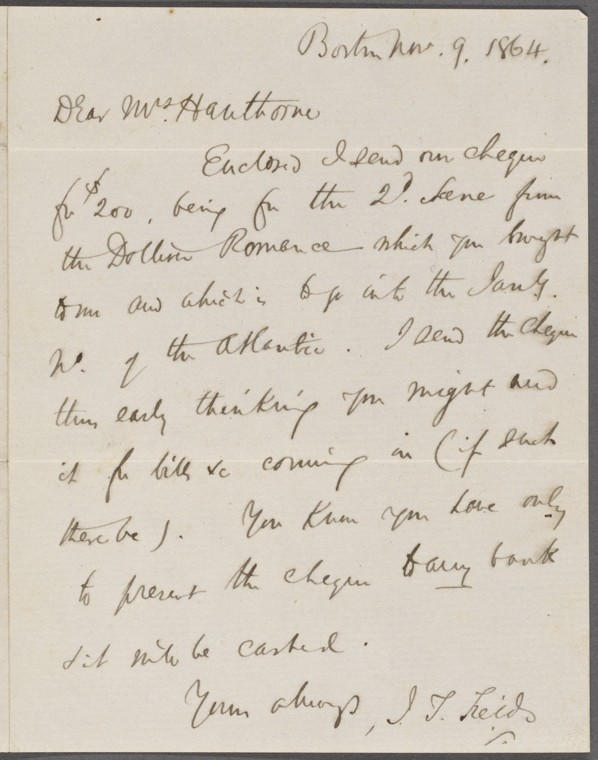 Boston Nov. 9. 1864.
Dear Mrs. Hawthorne
Enclosed I send our cheque
for $200, being for the 2d. Scene from
the Dolliver Romance which you brought
to me and which is to go into the Jany.
No. of the Atlantic. I send the cheque
thus early thinking you might need
it for bills &c coming in (if such
there be). You know you have only
to present the cheque to any bank
& it will be cashed.
Yours always, J. T. Fields